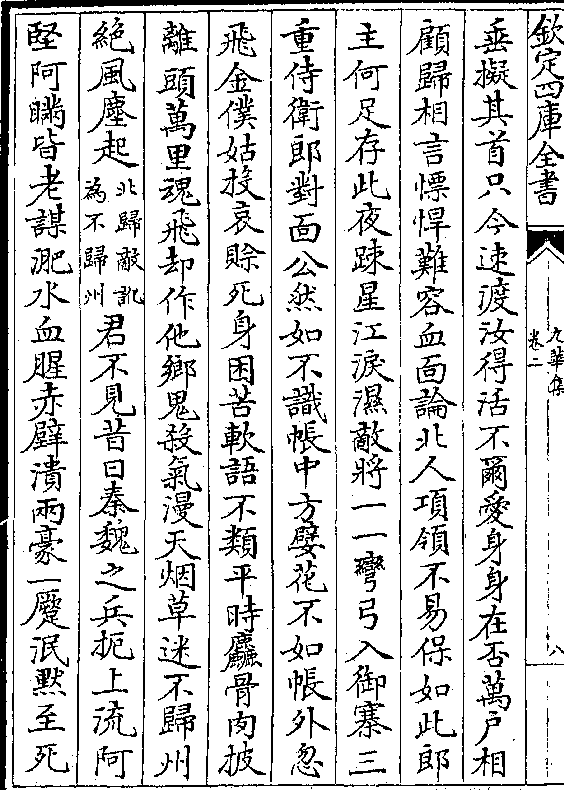 欽定四庫全書
九華集
卷二
八
垂擬其首只今速渡汝得活不爾愛身身在否萬户相
顧歸相言慓悍難容血面論北人項領不易保如此郎
主何足存此夜踈星江淚濕敵將一一彎弓入御寨三
重侍衛郎對面公然如不識帳中方嬖花不如帳外忽
飛金僕姑投哀賖死身困苦軟語不類平時麤骨肉披
離頭萬里魂飛却作他鄉鬼殺氣漫天烟草迷不歸州
絶風塵起北歸敵訛為不歸州君不見昔日秦魏之兵扼上流阿
堅阿瞞皆老謀淝水血腥赤壁潰兩豪一蹙泯黙至死